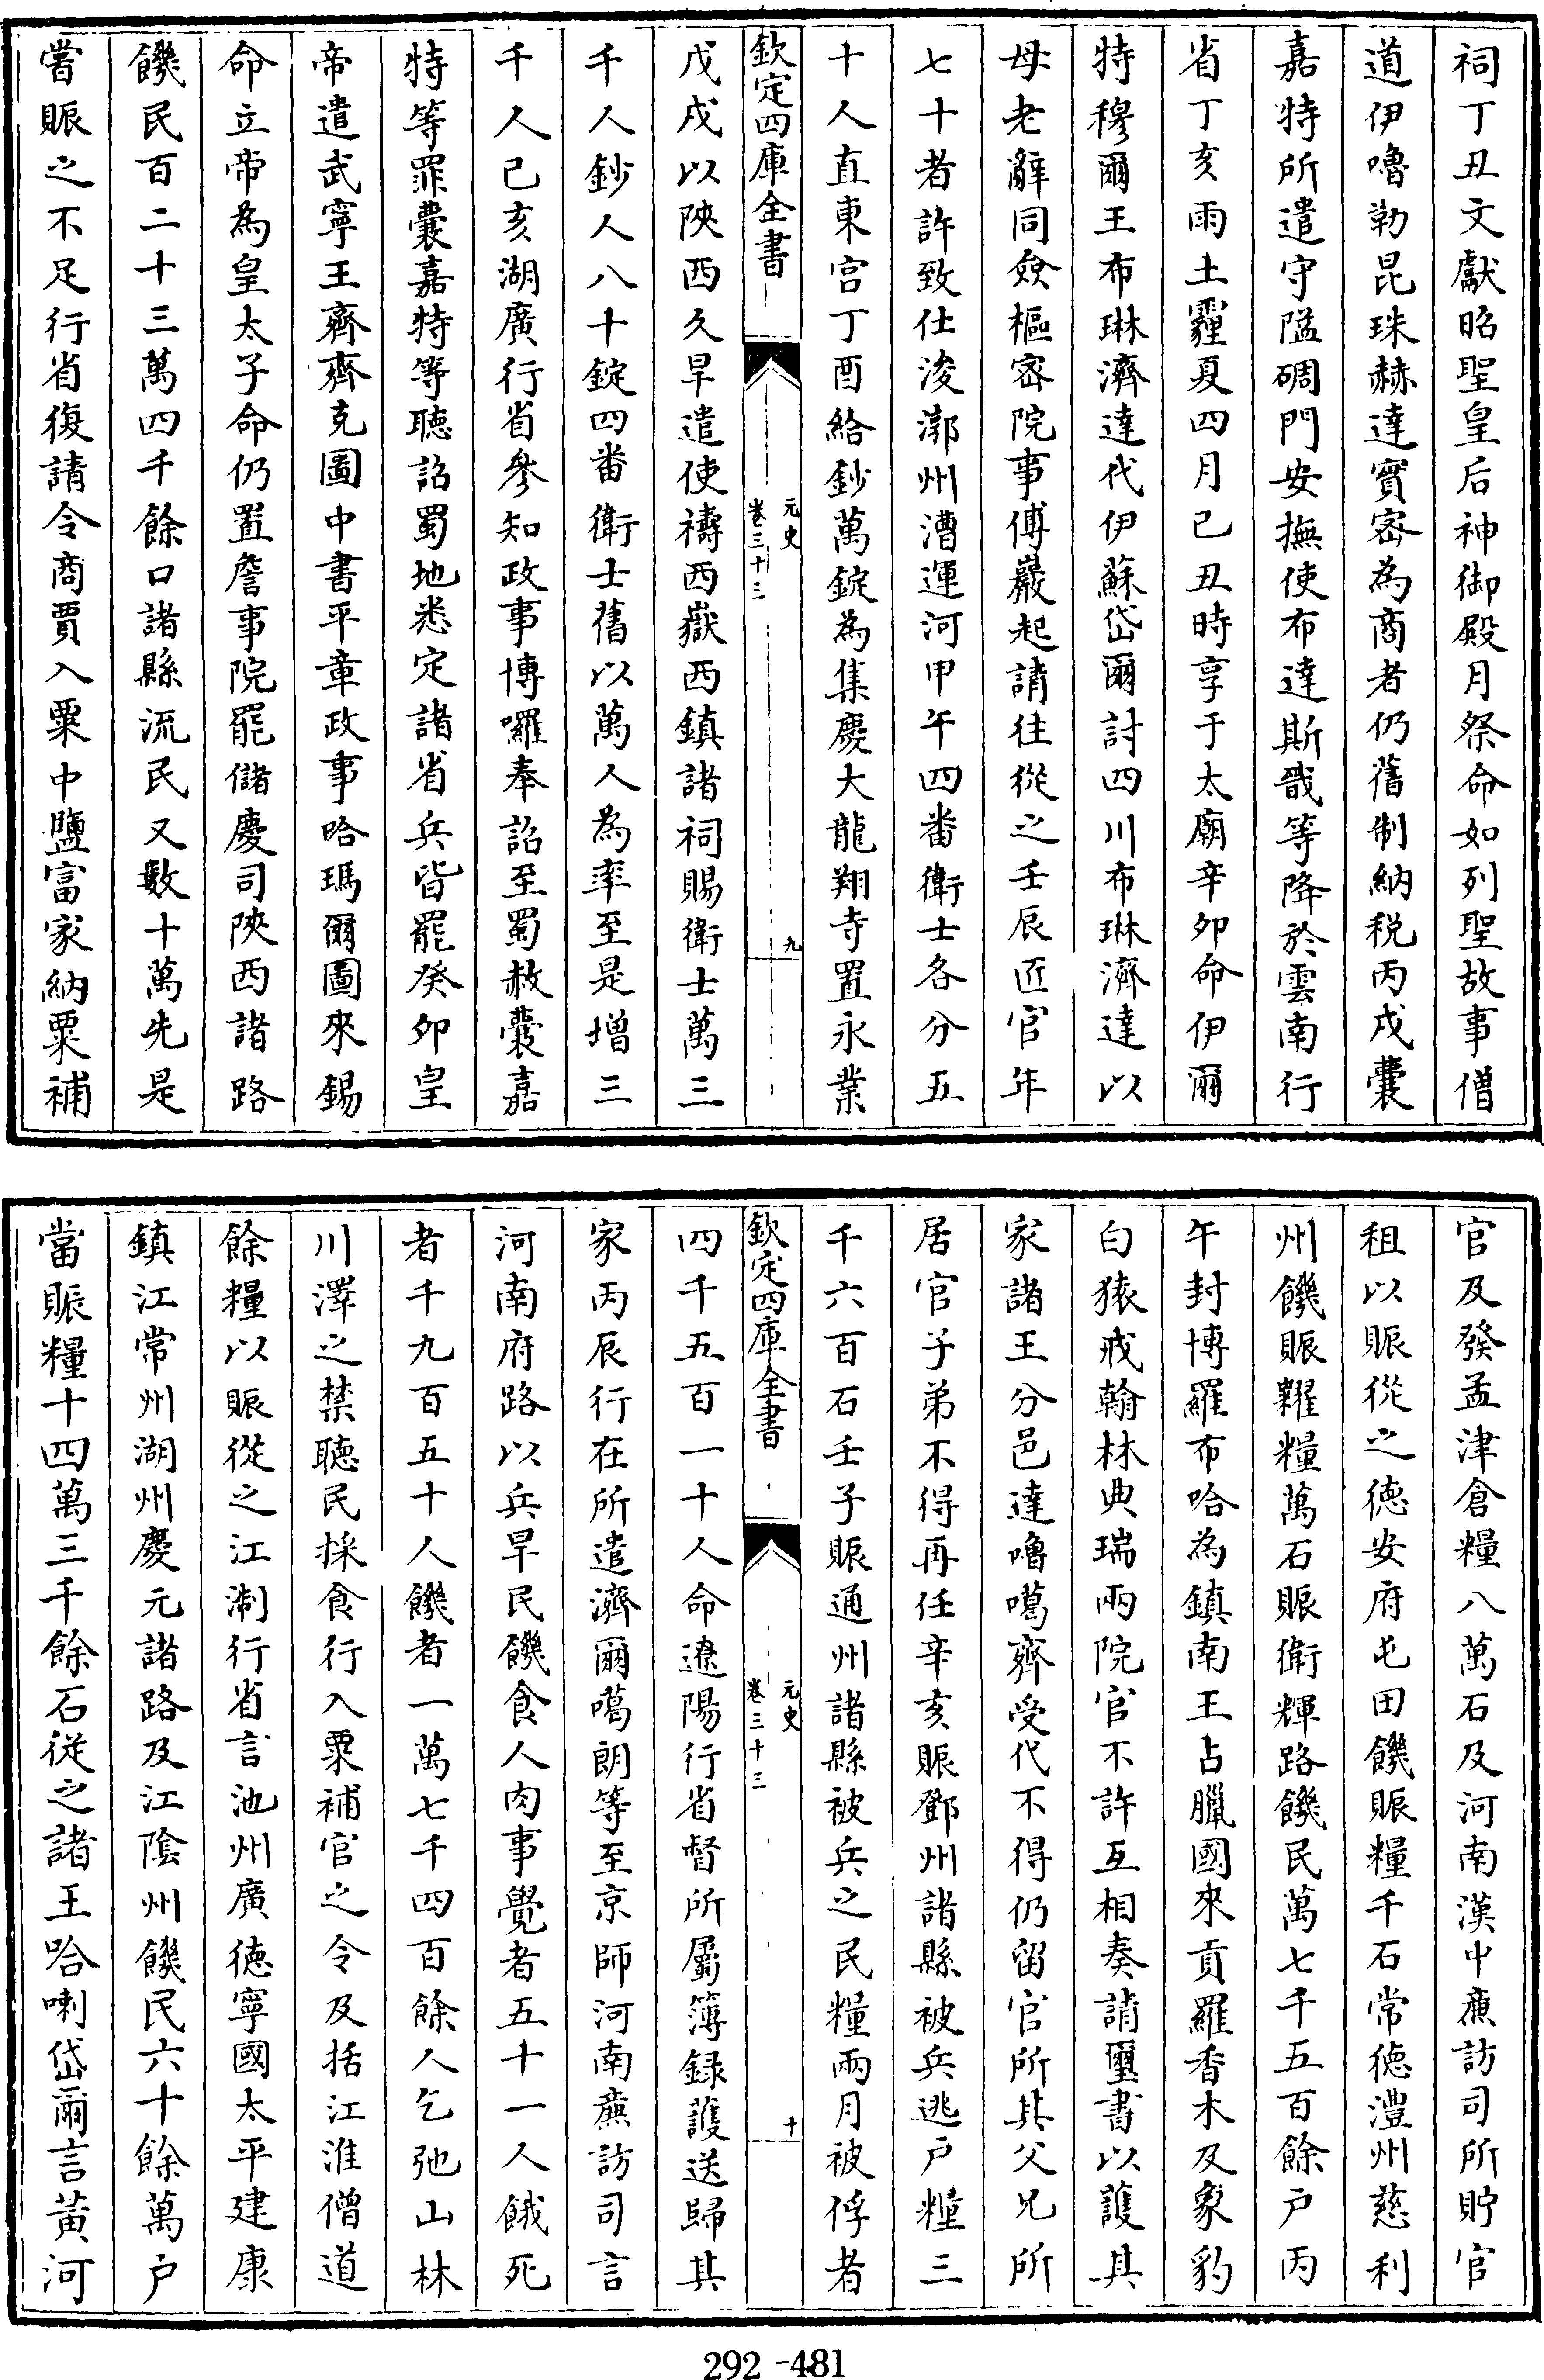 祠丁丑文獻昭聖皇后神御殿月祭命如列聖故事僧
道伊嚕勒昆珠赫達實密為商者仍舊制納税丙戌囊
嘉特所遣守隘碉門安撫使布達斯戩等降於雲南行
省丁亥雨土霾夏四月己丑時享于太廟辛卯命伊爾
特穆爾王布琳濟達代伊蘇岱爾討四川布琳濟達以
母老辭同僉樞密院事傅巖起請往從之壬辰匠官年
七十者許致仕浚漷州漕運河甲午四番衛士各分五
十人直東宫丁酉給鈔萬錠為集慶大龍翔寺置永業
欽定四庫全書
元史
卷三十三
九
戊戌以陜西久旱遣使禱西嶽西鎮諸祠賜衛士萬三
千人鈔人八十錠四番衛士舊以萬人為率至是增三
千人己亥湖廣行省參知政事博囉奉詔至蜀赦囊嘉
特等罪囊嘉特等聽詔蜀地悉定諸省兵皆罷癸卯皇
帝遣武寧王齊齊克圖中書平章政事哈瑪爾圖來錫
命立帝為皇太子命仍置詹事院罷儲慶司陜西諸路
饑民百二十三萬四千餘口諸縣流民又數十萬先是
嘗賑之不足行省復請令商賈入粟中鹽富家納粟補
官及發孟津倉糧八萬石及河南漢中亷訪司所貯官
租以賑從之徳安府屯田饑賑糧千石常徳澧州慈利
州饑賑糶糧萬石賑衛輝路饑民萬七千五百餘户丙
午封博羅布哈為鎮南王占臘國來貢羅香木及象豹
白猿戒翰林典瑞兩院官不許互相奏請璽書以護其
家諸王分邑達嚕噶齊受代不得仍留官所其父兄所
居官子弟不得再任辛亥賑鄧州諸縣被兵逃户糧三
千六百石壬子賑通州諸縣被兵之民糧兩月被俘者
欽定四庫全書
元史
卷三十三
十
四千五百一十人命遼陽行省督所屬簿録護送歸其
家丙辰行在所遣濟爾噶朗等至京師河南亷訪司言
河南府路以兵旱民饑食人肉事覺者五十一人餓死
者千九百五十人饑者一萬七千四百餘人乞弛山林
川澤之禁聽民採食行入粟補官之令及括江淮僧道
餘糧以賑從之江淛行省言池州廣徳寧國太平建康
鎮江常州湖州慶元諸路及江陰州饑民六十餘萬户
當賑糧十四萬三千餘石從之諸王哈喇岱爾言黃河
292-481